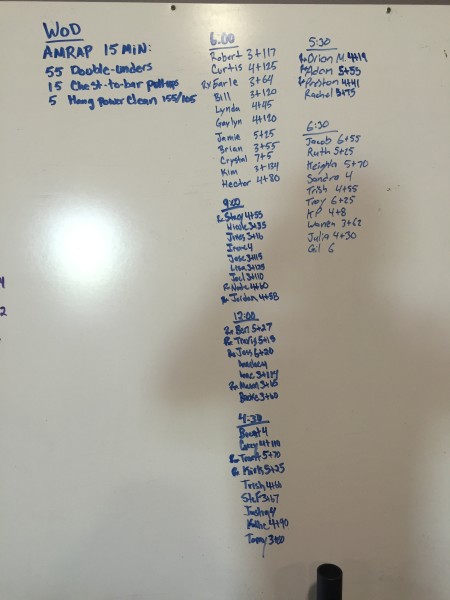 WOD
AMRAP 15 MIN:
55 Double-unders
15 Chest-to-bar pull-ups
5 Hang Power Clean 155/105
6:00
Robert 3+117
Curtis 4+125
Rx Earle 3+64
Bill 3+120
Lynda 4+45
Gaylyn 4+120
Jamie 5+25
Brian 3+55
Crystal 7+5
Kim 3+134
Hector 4+80
9:00
Rx Stacy 4+55
Nicole 3+35
James 3+16
Irene 4
Jose 3+115
Lisa 3+125
Joel 3+110
Rx Nate 4+60
Rx Jordan 4+58
12:00
Rx Ben 5+27
Rx Travis 5+15
Rx Joss 6+20
Rx Mason 3+65
3+60
4:30
Brent 4
Casey 4+110
Rx 5+70
Rx Kirk 5+25
Trish 4+61
Stef 3+67
Joshua 4
Kallie 4+90
Tammy 3+60
5:30
Rx Orion M. 4+19
Rx Adam 5+55
Rx Preston 4+41
Rachel 3+75
6:30
Jacob 6+55
Ruth 5+25
Keighla 5+70
Sandra 4
Trish 4+55
Troy 6+25
KP 4+8
Warren 3+62
Julia 4+30
Gil 6